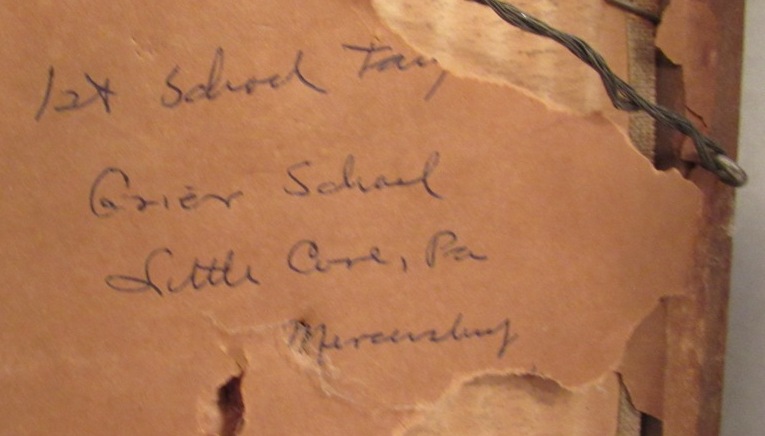 1st School Tau
Grier School
Little Cove, Pa
Mercersburg